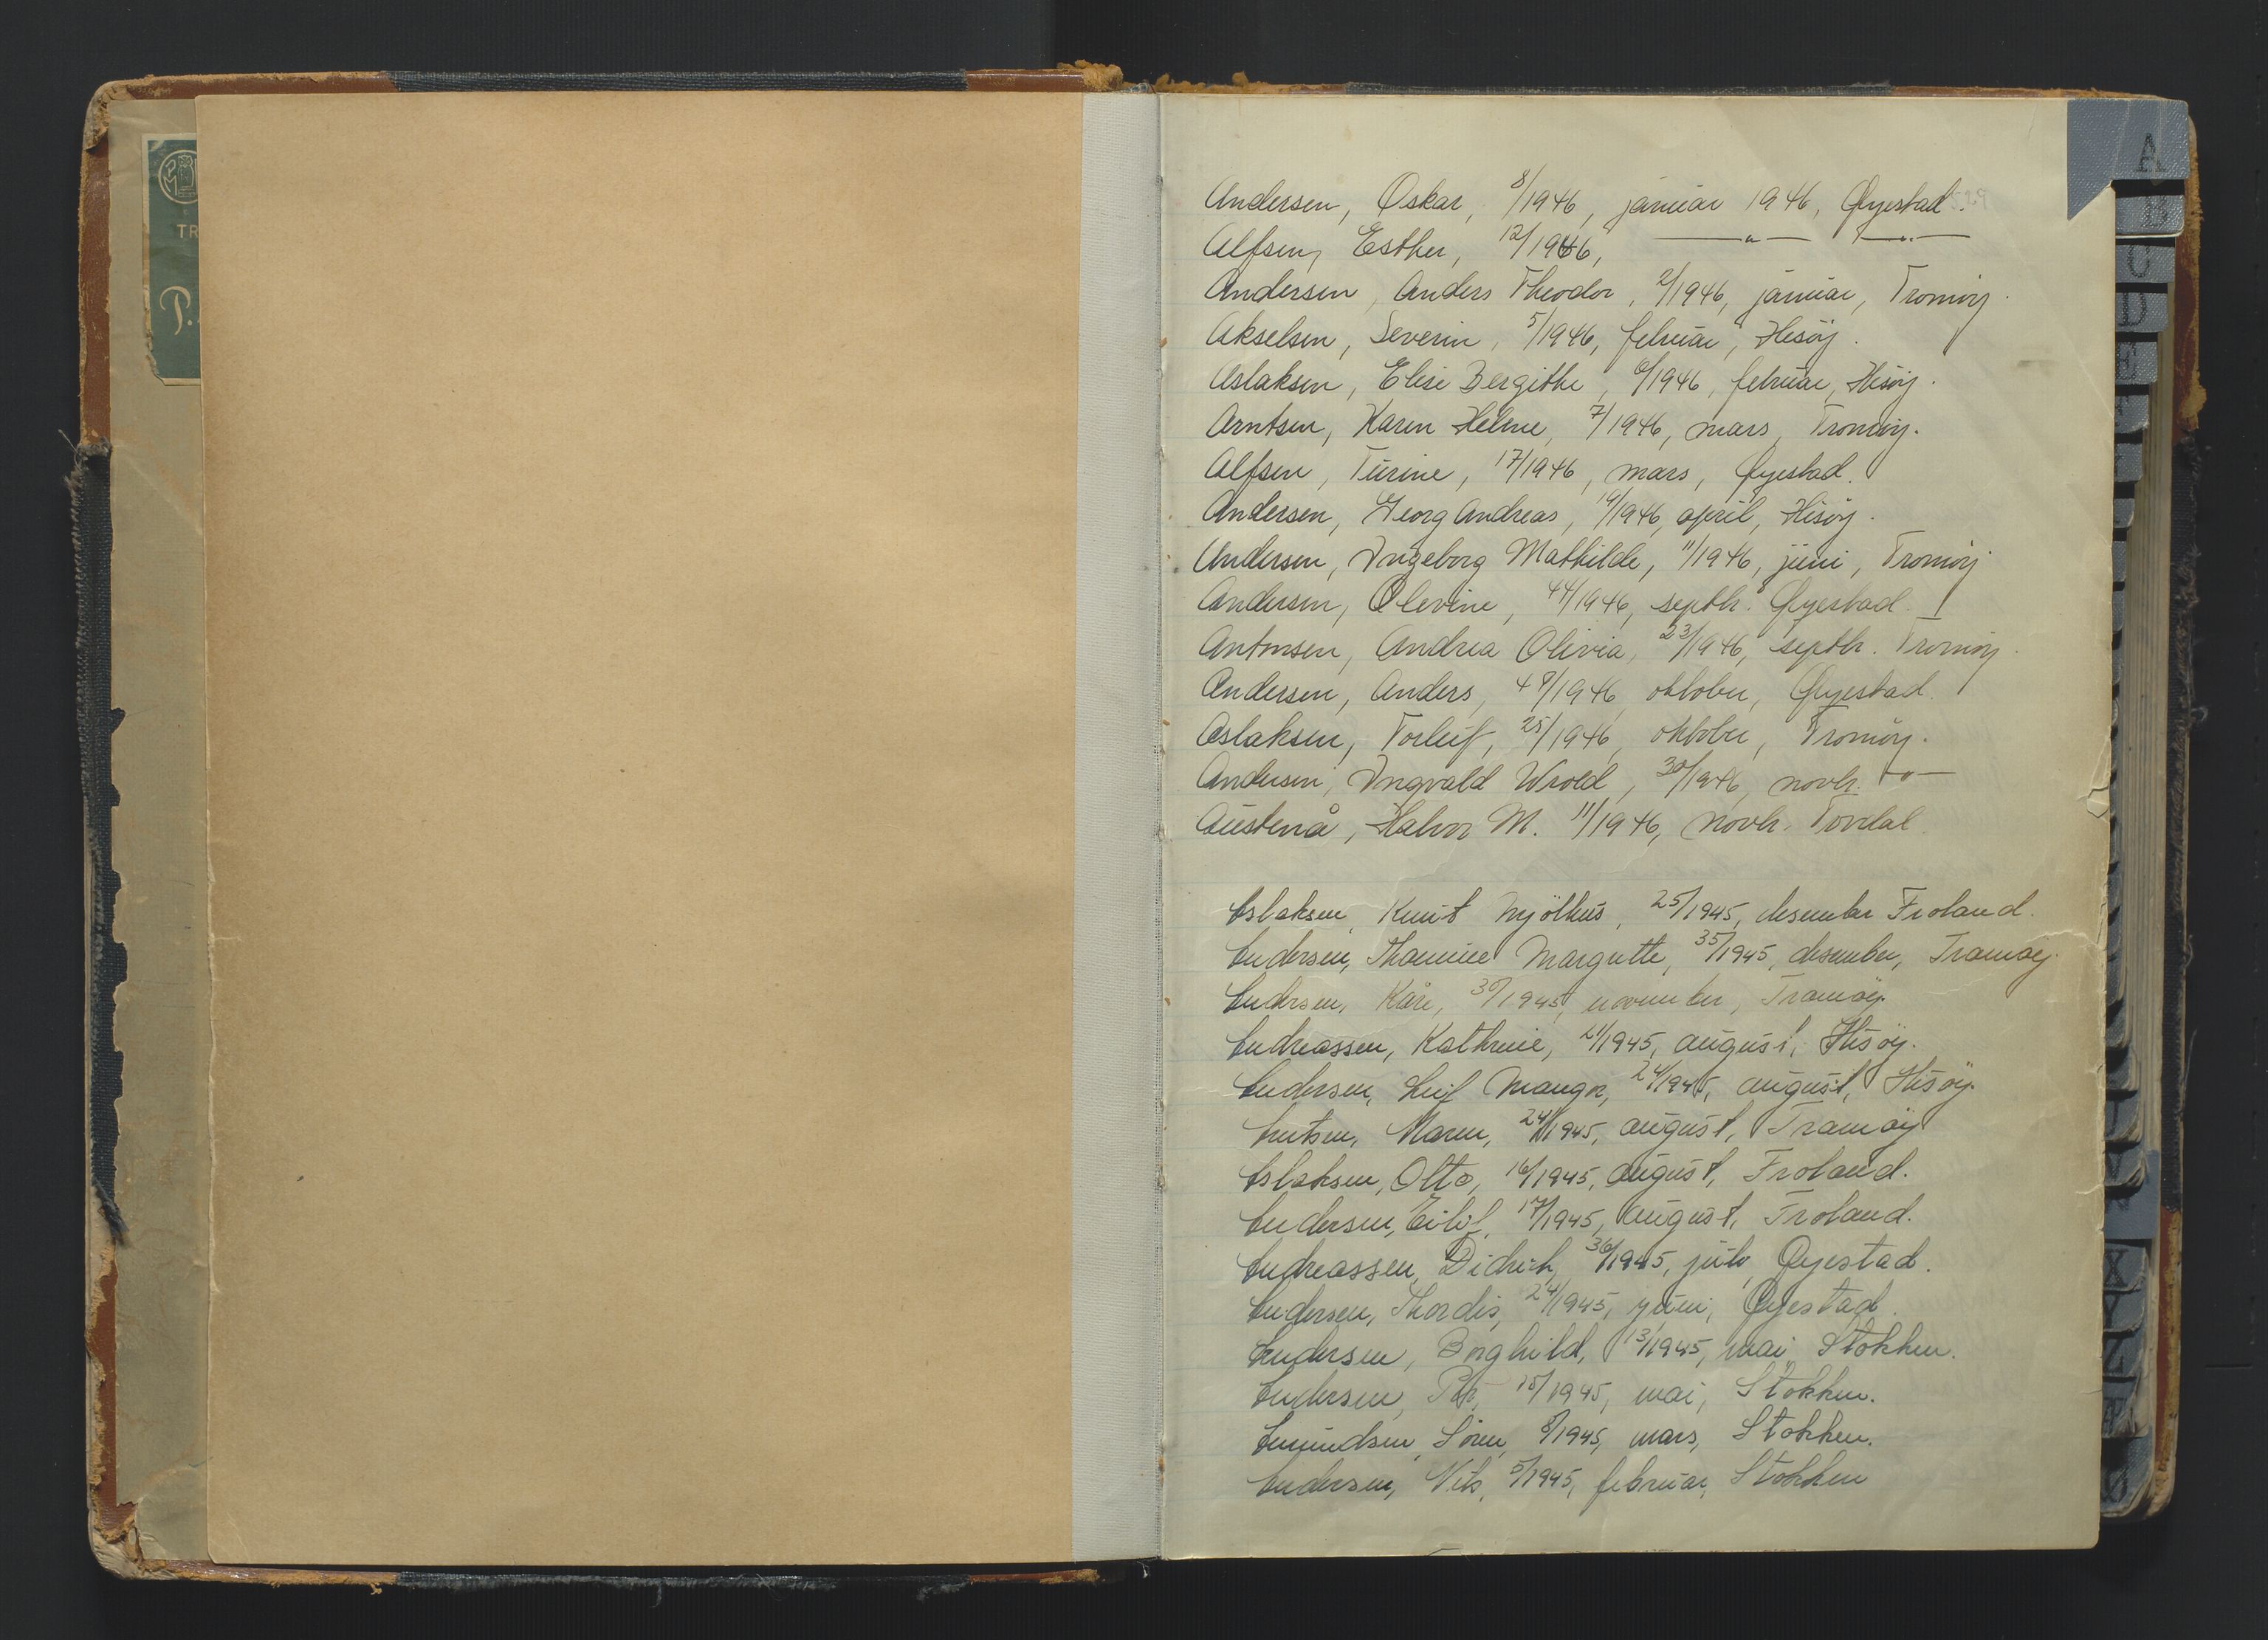 TR
P.
A
B
C
D
E
F
Andersen, Oskar, 8/1946, januar 1946, Øyestad.
Alfsen, Esther, 12/1946, —"— —"—
Andersen, Anders Theodor, 2/1946, januar, Tromøy.
Akselsen, Severin, 5/1946, februar, Hisøy.
Aslaksen, Elise Bergithe, 6/1946, februar, Hisøy.
Arntsen, Karen Helene, 7/1946, mars, Tromøy.
Alfsen, Turine, 17/1946, mars, Øyestad.
Andersen, Georg Andreas, 14/1946, april, Hisøy.
Andersen, Ingeborg Mathilde, 11/1946, juni, Tromøy
Andersen, Olevine, 44/1946, septbr. Øyestad.
Antonsen, Andrea Olivia, 23/1946, septbr. Tromøy.
Andersen, Anders, 48/1946, oktober, Øyestad.
Aslaksen, Torleif, 25/1946, oktober, Tromøy.
Andersen, Ingvald Wrold, 30/1946, novbr. —"—
Austenå, Halvor M. 11/1946, novbr. Tovdal.
Aslaksen, Knut Mjölhus, 25/1945, desember Froland.
Andersen, Thomine Margrethe, 35/1945, desember, Tromøy.
Andersen, Kåre, 30/1945, november, Tromøy.
Andreassen, Kathrine, 21/1945, august, Hisøy.
Andersen, Leif Mangor, 24/1945, august, Hisøy.
Arntsen, Maren, 24/1945, august, Tromøy
Aslaksen, Otto, 16/1945, august, Froland.
Andersen, Eilif, 17/1945, august, Froland.
Andreassen, Didrik, 36/1945, juli, Øyestad.
Andersen, Thordis, 24/1945, juni, Øyestad.
Andersen, Borghild, 13/1945, mai, Stokken.
Andersen, 15/1945, mai, Stokken.
Amundsen, Sören, 8/1945, mars, Stokken.
Andersen, Nils, 5/1945, februar, Stokken
X
Y
Z
Æ
Ø